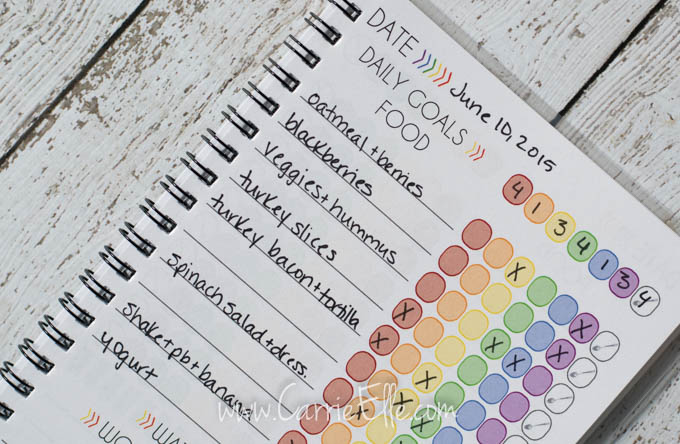 DATE June 10, 2015
DAILY GOALS
FOOD
4 1 3 4 1 3 4
oatmeal + berries
blackberries
veggies + hummus
turkey slices
turkey bacon + tortilla
X
X
X
spinach salad + dress.
X
X
X
shake + pb + banana
X
X
yogurt
www.CarrieElle.com